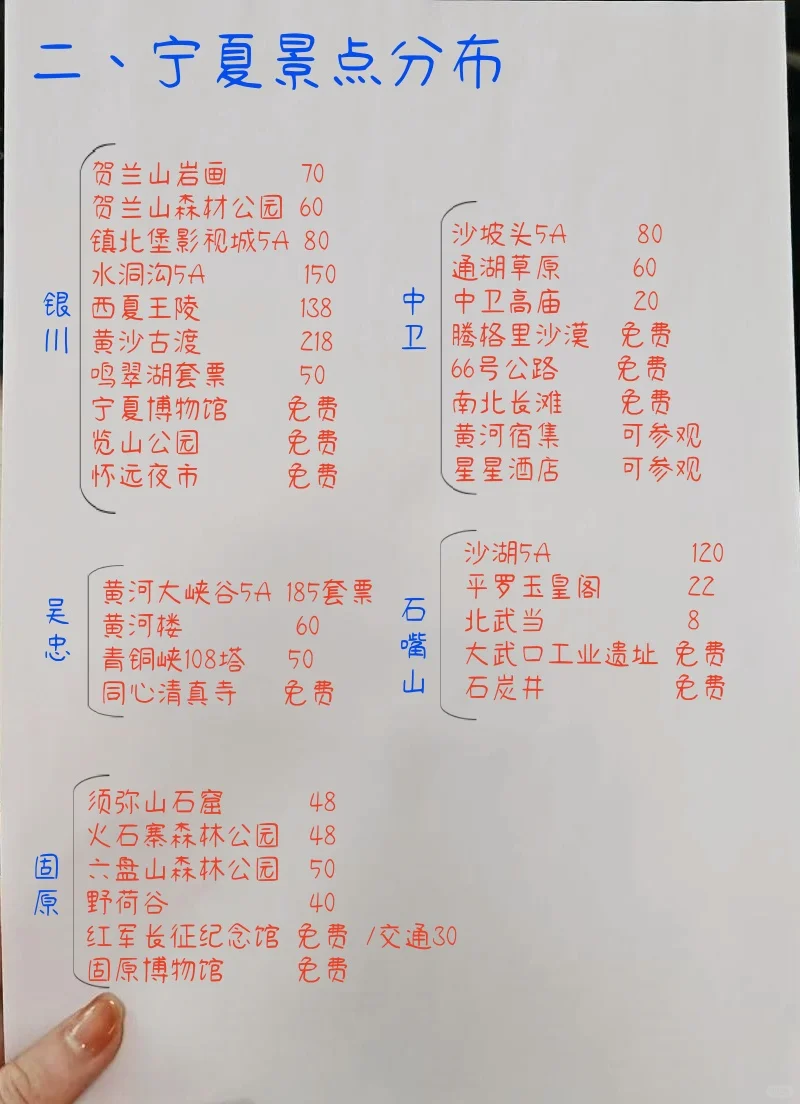 二、宁夏景点分布
银川
贺兰山岩画 70
贺兰山森材公园 60
镇北堡影视城5A 80
水洞沟5A 150
西夏王陵 138
黄沙古渡 218
鸣翠湖套票 50
宁夏博物馆 免费
览山公园 免费
怀远夜市 免费
中卫
沙坡头5A 80
通湖草原 60
中卫高庙 20
腾格里沙漠 免费
66号公路 免费
南北长滩 免费
黄河宿集 可参观
星星酒店 可参观
吴忠
黄河大峡谷5A 185套票
黄河楼 60
青铜峡108塔 50
同心清真寺 免费
石嘴山
沙湖5A 120
平罗玉皇阁 22
北武当 8
大武口工业遗址 免费
石炭井 免费
固原
须弥山石窟 48
火石寨森林公园 48
六盘山森林公园 50
野荷谷 40
红军长征纪念馆 免费 /交通30
固原博物馆 免费